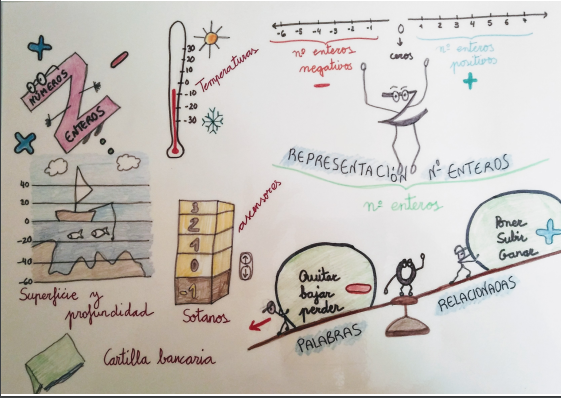 NÚMEROS
ENTEROS
30
20
10
0
-10
-20
-30
Temperaturas
-6 -5 -4 -3 -2 -1 0 1 2 3 4 5 6 7
nº enteros
negativos
-
ceros
nº enteros
positivos
+
REPRESENTACIÓN Nº ENTEROS
nº enteros
40
20
0
-20
-40
-60
Superficie y
profundidad
3
2
1
0
-1
ascensores
Sotanos
Quitar
bajar
perder
-
PALABRAS
Poner
Subir
Ganar
+
RELACIONADAS
Cartilla bancaria